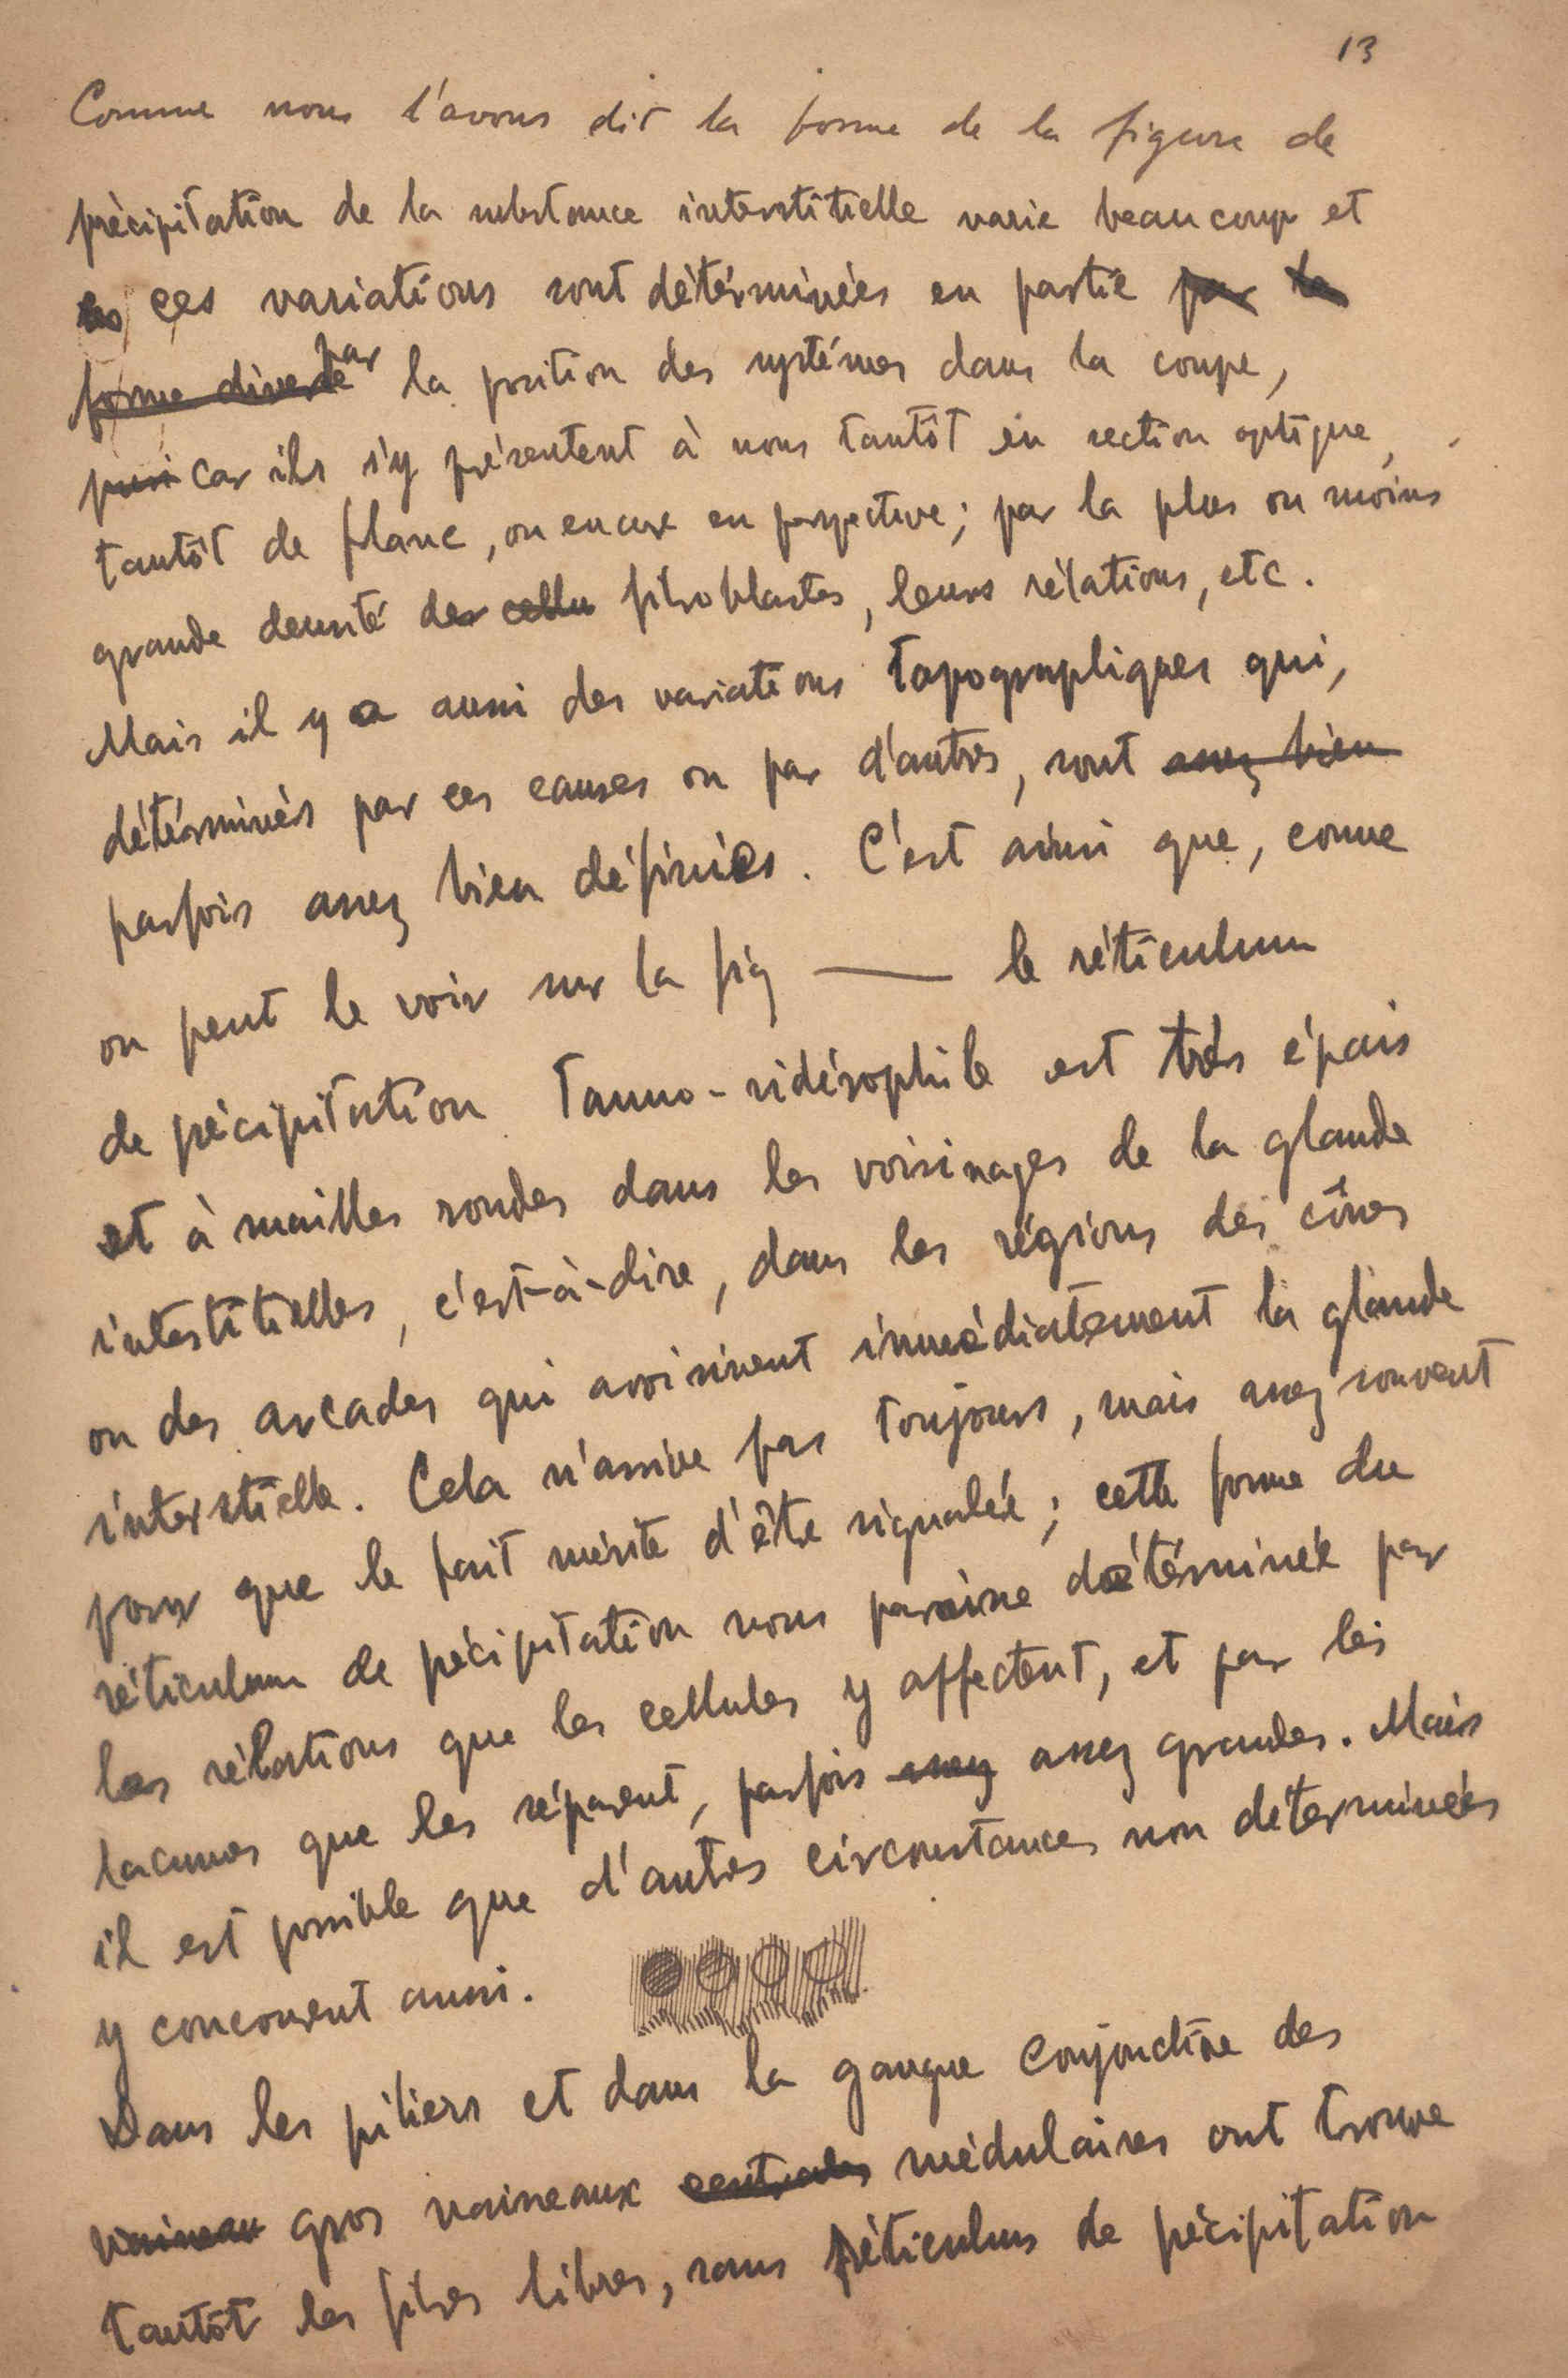 13
Comme nous l'avons dit la forme de la figure de
précipitation de la substance interstitielle varie beaucoup et
les ces variations sont détérminées en partie par la
forme diverse par la position des systémes dans la coupe,
puis car ils s'y présentent à nous tantôt en section optique,
tantôt de flanc, ou encore en perspective; par la plus ou moins
grande densité des cellu fibroblastes, leurs rélations, etc.
Mais il y a aussi des variations topographiques qui,
détérminés par ces causes ou par d'autres, sont assez bien
parfois assez bien définies. C'est ainsi que, comme
on peut le voir sur la fig —— le réticulum
de précipitation tanno-sidérophile est très épais
et à mailles rondes dans les voisinages de la glande
interstitielles, c'est-à-dire, dans les régions des cônes
ou des arcades qui avoisinent inmédiatement la glande
interstielle. Cela n'arrive pas toujours, mais assez souvent
pour que le fait mérite d'être signalée; cette forme du
réticulum de précipitation nous paraisse détérminée par
les rélations que les cellules y affectent, et par les
lacunes que les séparent, parfois assez assez grandes. Mais
il est possible que d'autres circonstances non determinées
y concourent aussi.
Dans les piliers et dans la gangue conjonctive des
vaisseau gros vaisseaux centrales médulaires ont trouve
tantôt les fibres libres, sans réticulus de précipitation